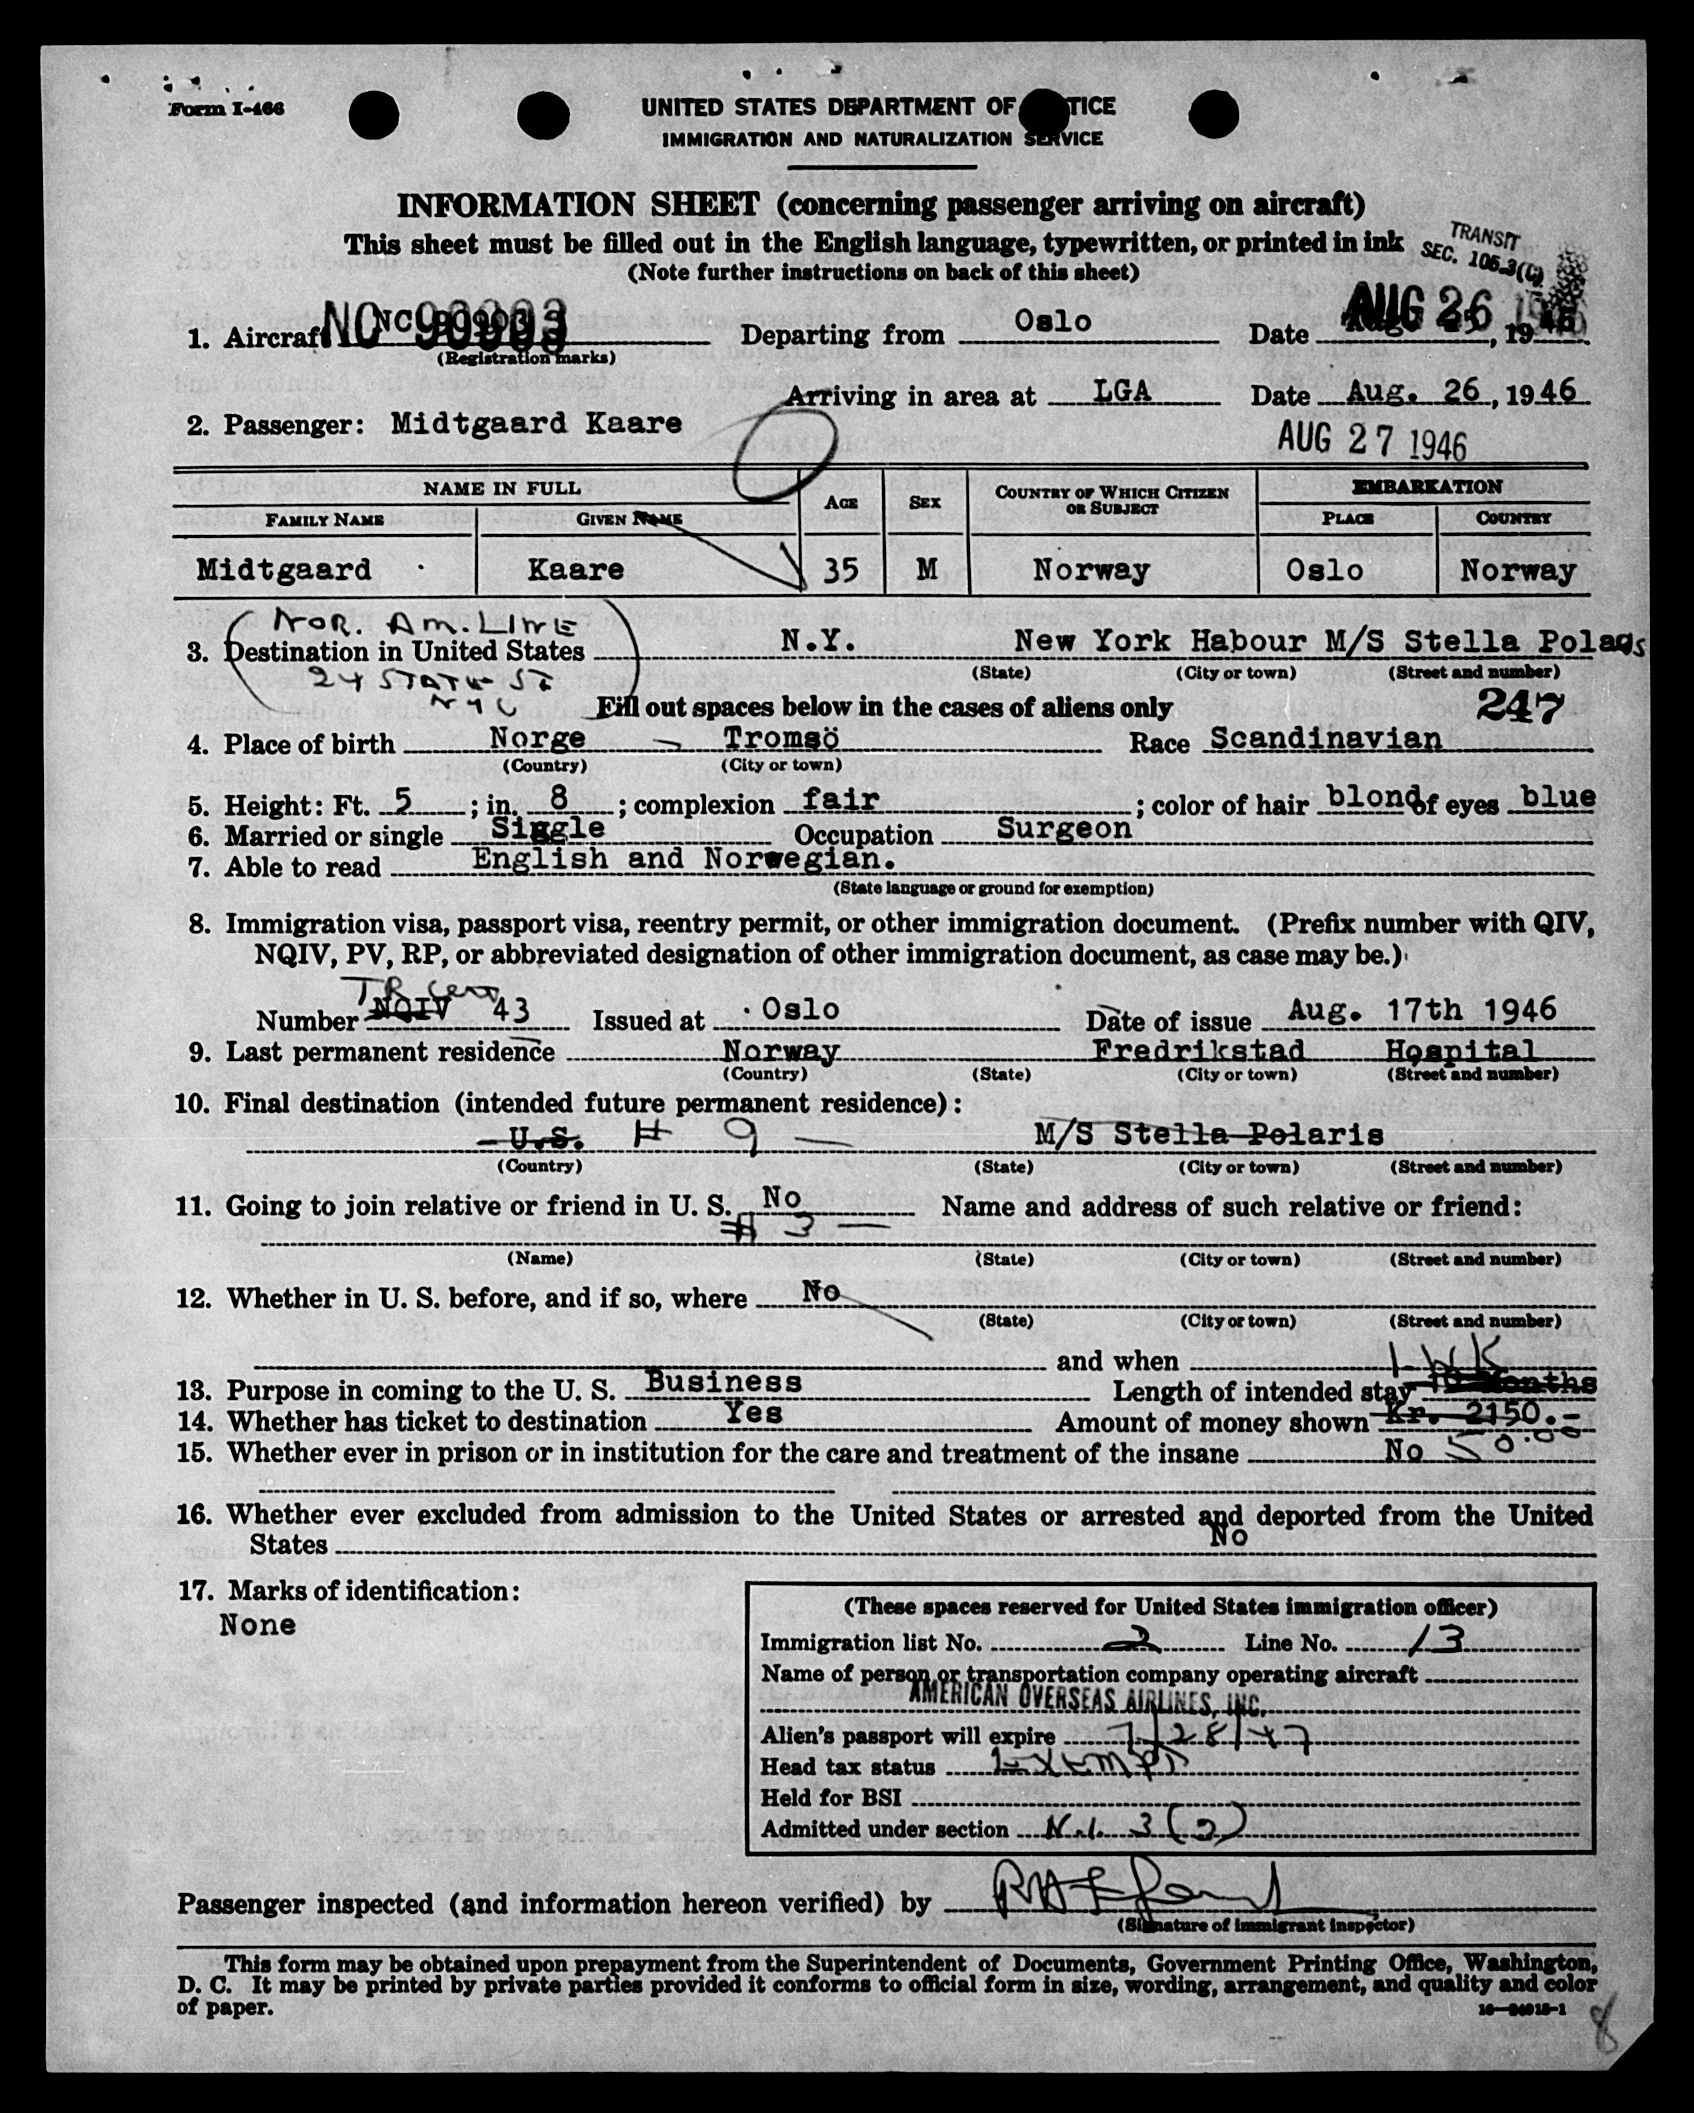 Form I-466
UNITED STATES DEPARTMENT OF TICE
IMMIGRATION AND NATURALIZATION SERVICE
INFORMATION SHEET (concerning passenger arriving on aircraft)
This sheet must be filled out in the English language, typewritten, or printed in ink
TRANSIT
SEC. 105.3(C)
(Note further instructions on back of this sheet)
1. Aircraft NC 90903 Departing from Oslo Date AUG 26 , 1946
(Registration marks)
Arriving in area at LGA Date Aug. 26, 1946
2. Passenger: Midtgaard Kaare
AUG 27 1946
NAME IN FULL AGE SEX COUNTRY OF WHICH CITIZEN OR SUBJECT EMBARKATION
FAMILY NAME GIVEN NAME PLACE COUNTRY
Midtgaard Kaare 35 M Norway Oslo Norway
NOR. AM. LINE
3. Destination in United States N.Y. New York Habour M/S Stella Polaris
(State) (City or town) (Street and number)
24 STATE ST
NYC
Fill out spaces below in the cases of aliens only 247
4. Place of birth Norge - Tromsö Race Scandinavian
(Country) (City or town)
5. Height: Ft. 5 ; in. 8 ; complexion fair ; color of hair blond of eyes blue
6. Married or single Single Occupation Surgeon
7. Able to read English and Norwegian.
(State language or ground for exemption)
8. Immigration visa, passport visa, reentry permit, or other immigration document. (Prefix number with QIV,
NQIV, PV, RP, or abbreviated designation of other immigration document, as case may be.)
TR Cert
Number NQIV 43 Issued at Oslo Date of issue Aug. 17th 1946
9. Last permanent residence Norway Fredrikstad Hospital
(Country) (State) (City or town) (Street and number)
10. Final destination (intended future permanent residence):
U.S. # 9 — M/S Stella Polaris
(Country) (State) (City or town) (Street and number)
11. Going to join relative or friend in U. S. No Name and address of such relative or friend:
# 3 —
(Name) (State) (City or town) (Street and number)
12. Whether in U. S. before, and if so, where No
(State) (City or town) (Street and number)
and when
1-WK
13. Purpose in coming to the U. S. Business Length of intended stay Months
14. Whether has ticket to destination Yes Amount of money shown Kr. 2150.-
15. Whether ever in prison or in institution for the care and treatment of the insane No 50.00
16. Whether ever excluded from admission to the United States or arrested and deported from the United
States No
17. Marks of identification:
None
(These spaces reserved for United States immigration officer)
Immigration list No. 2 Line No. 13
Name of person or transportation company operating aircraft
AMERICAN OVERSEAS AIRLINES, INC.
Alien's passport will expire 7/28/47
Head tax status Exempt
Held for BSI
Admitted under section N.I. 3(2)
Passenger inspected (and information hereon verified) by
(Signature of immigrant inspector)
This form may be obtained upon prepayment from the Superintendent of Documents, Government Printing Office, Washington,
D. C. It may be printed by private parties provided it conforms to official form in size, wording, arrangement, and quality and color
of paper.
8